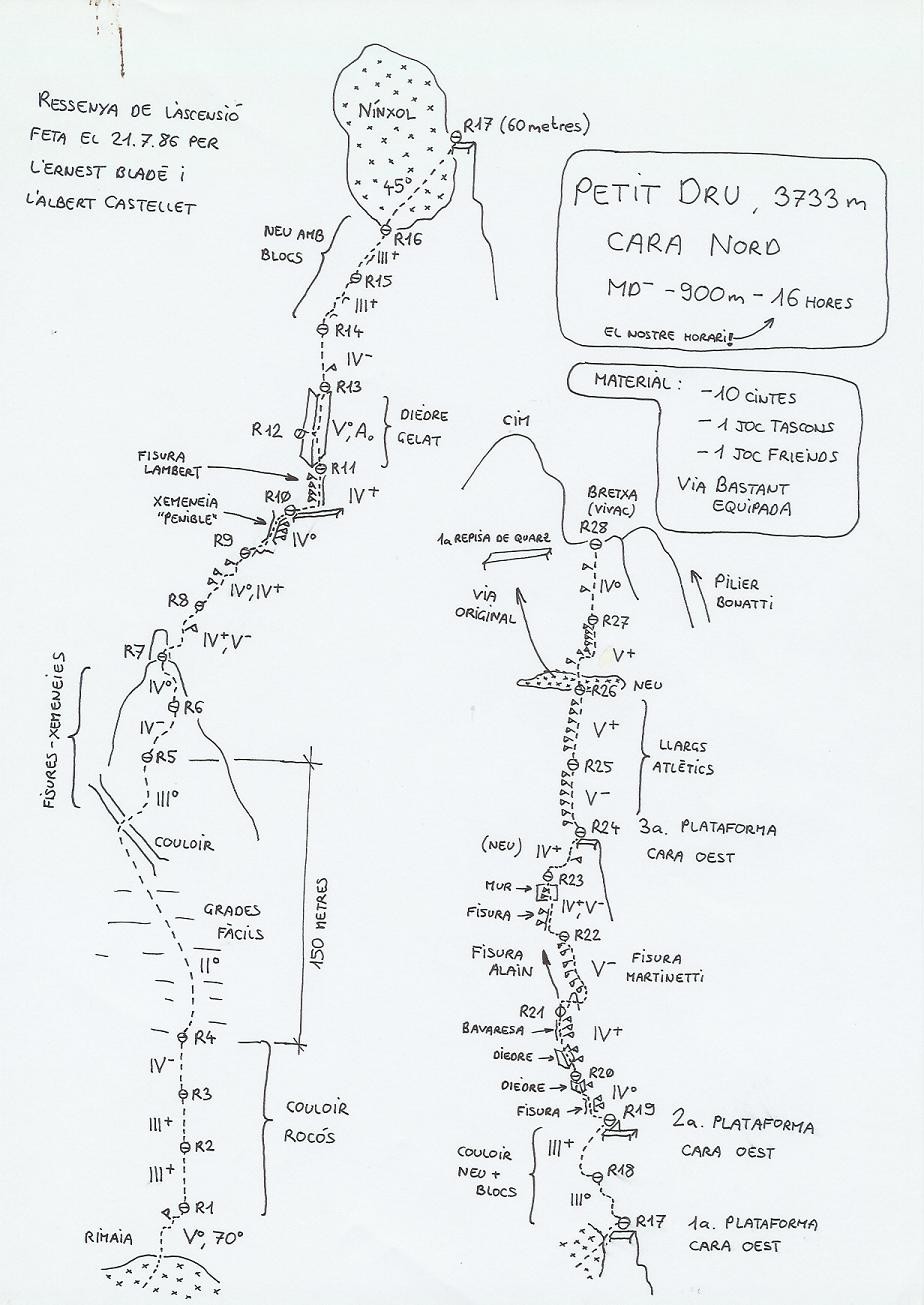 RESSENYA DE L'ASCENSIÓ
FETA EL 21.7.86 PER
L'ERNEST BLADÉ i
L'ALBERT CASTELLET
PETIT DRU, 3733 m
CARA NORD
MD⁻ - 900 m - 16 HORES
EL NOSTRE HORARI!
MATERIAL:
- 10 CINTES
- 1 JOC TASCONS
- 1 JOC FRIENDS
VIA BASTANT
EQUIPADA
NÍNXOL
R17 (60 metres)
45°
R16
NEU AMB
BLOCS
III+
R15
III+
R14
IV-
R13
R12
V°, A₀
DIEDRE
GELAT
R11
FISURA
LAMBERT
IV+
XEMENEIA
"PENIBLE"
R10
IV°
R9
IV°, IV+
R8
IV+, V-
R7
IV°
R6
IV-
FISURES-XEMENEIES
R5
III°
COULOIR
GRADES
FÀCILS
II°
150 METRES
R4
IV-
R3
III+
R2
III+
COULOIR
ROCÓS
R1
RIMAIA
V°, 70°
CIM
BRETXA
(VIVAC)
R28
1a REPISA DE QUARZ
IV°
PILIER
BONATTI
VIA
ORIGINAL
R27
V+
R26
NEU
V+
LLARGS
ATLÈTICS
R25
V-
R24
3a. PLATAFORMA
CARA OEST
(NEU)
IV+
R23
MUR
IV+, V-
FISURA
R22
FISURA
ALAIN
V-
FISURA
MARTINETTI
R21
BAVARESA
IV+
DIEDRE
R20
DIEDRE
IV°
FISURA
R19
2a. PLATAFORMA
CARA OEST
III+
COULOIR
NEU +
BLOCS
R18
III°
R17
1a. PLATAFORMA
CARA OEST